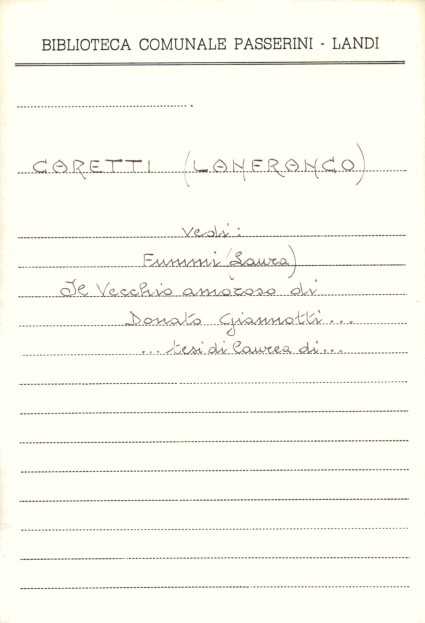 BIBLIOTECA COMUNALE PASSERINI - LANDI
CARETTI (LANFRANCO)
Vedi:
Fummi (Laura)
Il Vecchio amoroso di
Donato Giannotti...
...tesi di laurea di...